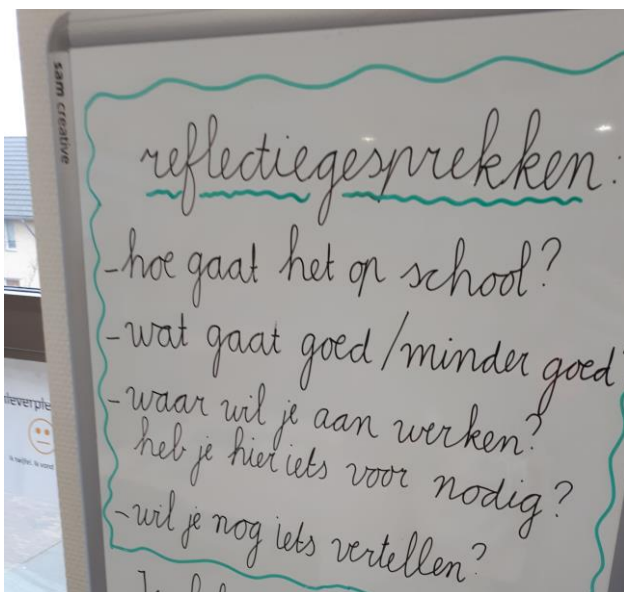 sam creative
reflectiegesprekken:
-hoe gaat het op school?
-wat gaat goed/minder goed
-waar wil je aan werken?
heb je hier iets voor nodig?
-wil je nog iets vertellen?